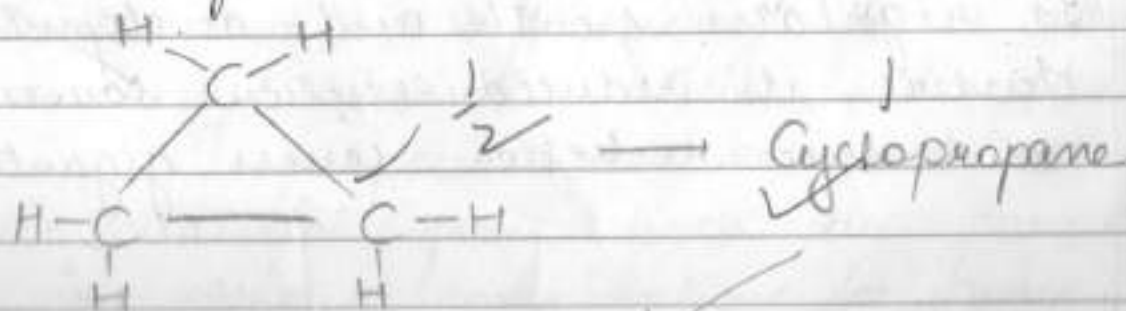 H H
C
1/2 — 1
Cyclopropane
H-C — C-H
H H